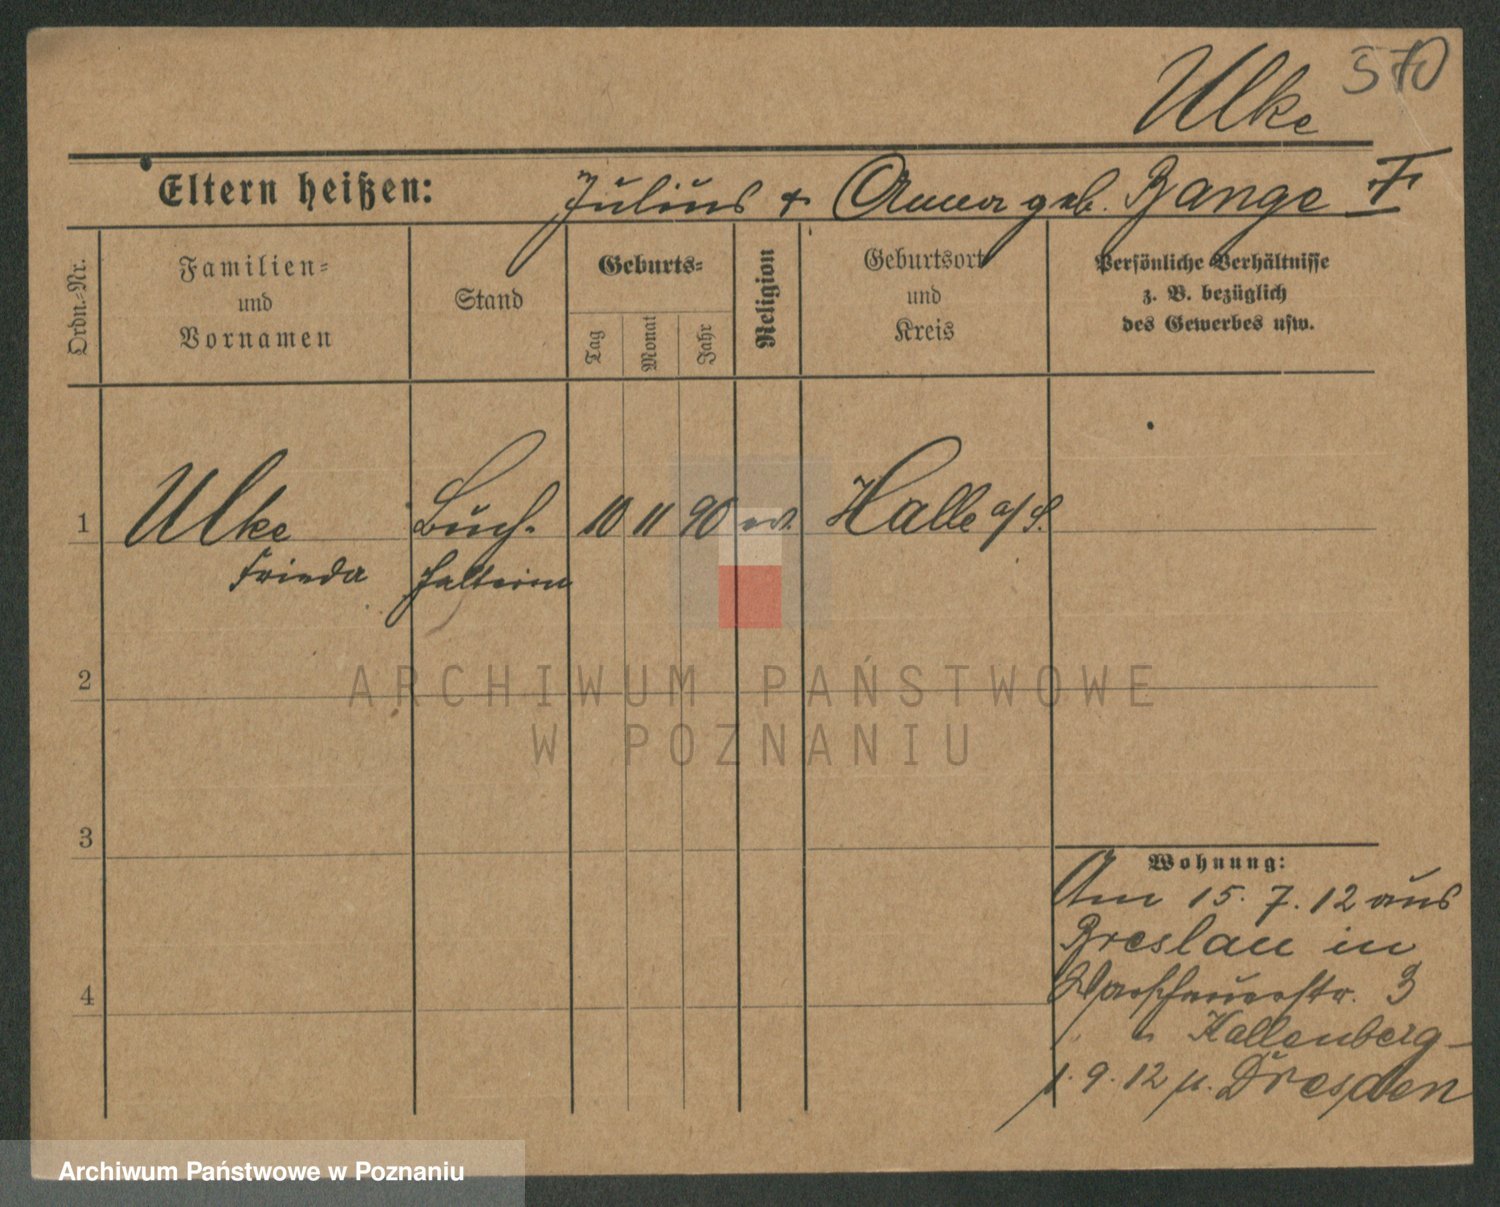 570
Ulke
Eltern heißen: Julius & Anna geb. Bange
Ordn.-Nr.
Familien-
und
Vornamen
Stand
Geburts-
Tag
Monat
Jahr
Religion
Geburtsort
und
Kreis
Persönliche Verhältnisse
z. B. bezüglich
des Gewerbes usw.
1 Ulke Buch- 10 11 90 Halle a/S.
Frieda halterin
2
ARCHIWUM PAŃSTWOWE
W POZNANIU
3
Wohnung:
Am 15. 7. 12 aus
Breslau in
Warschauerstr. 3
Kallenberg
1. 9. 12 n. Dresden
4
Archiwum Państwowe w Poznaniu